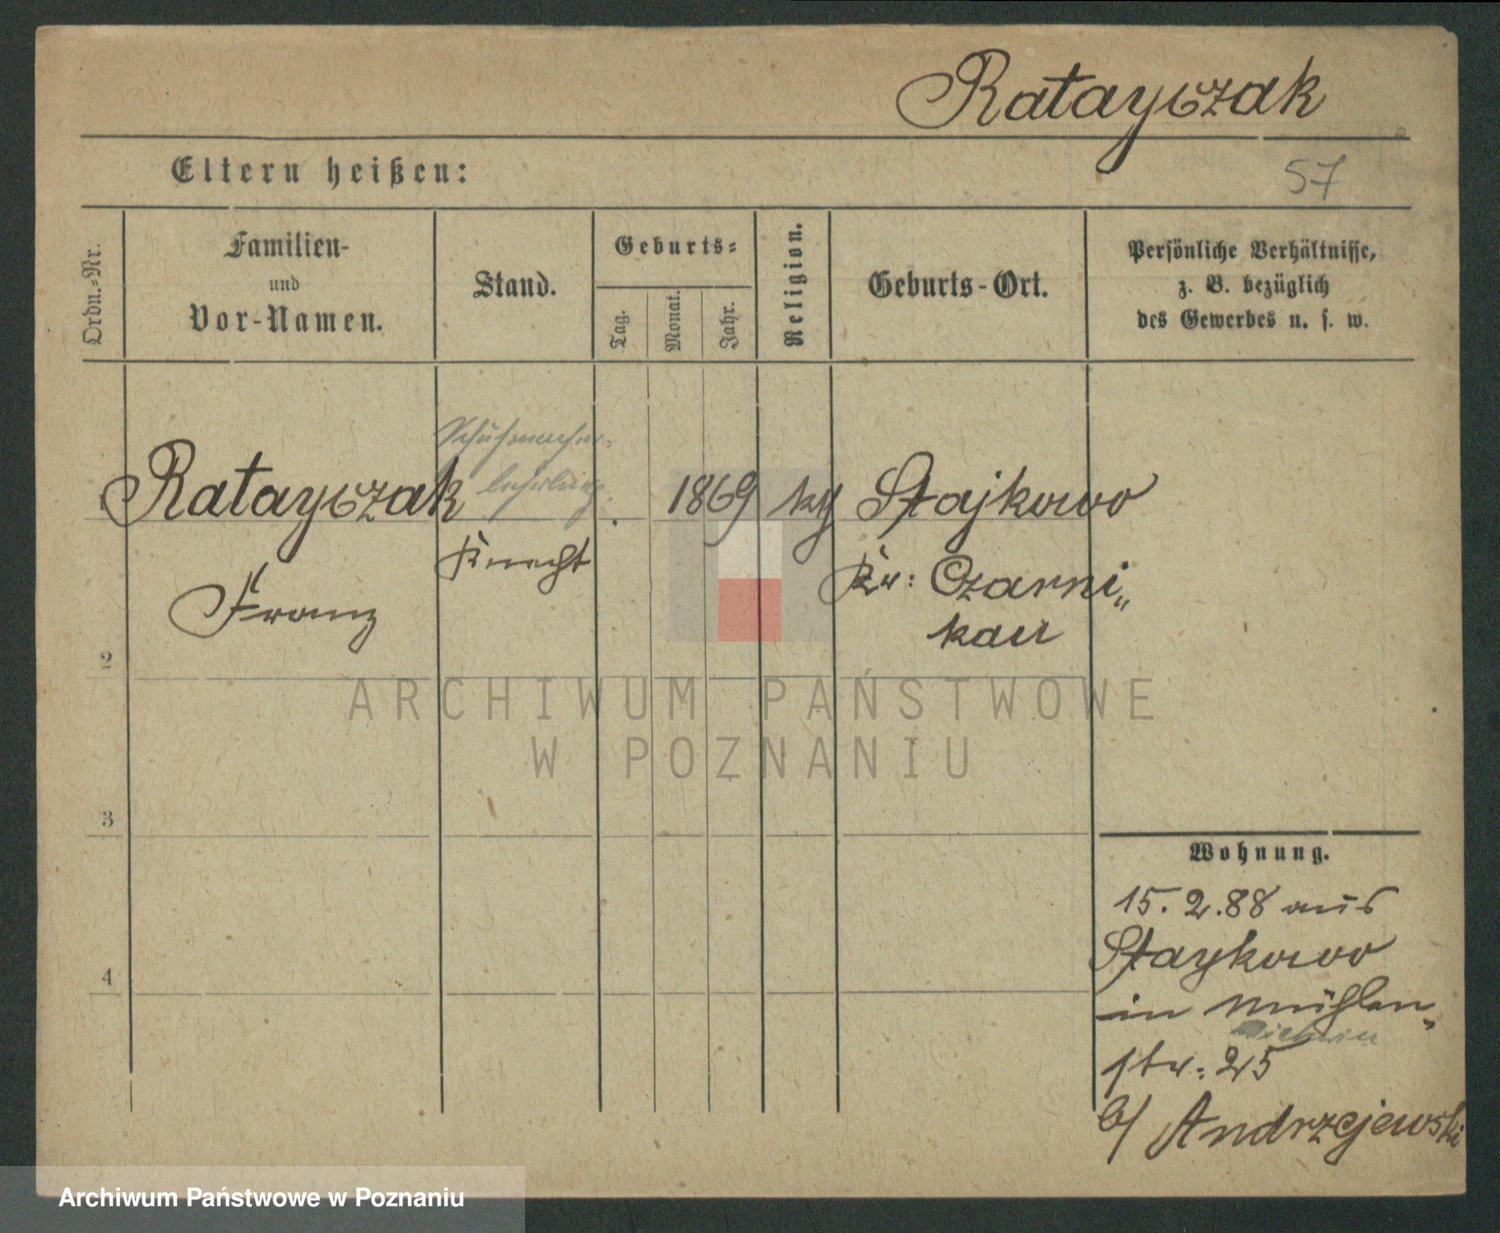 Ratayczak
Eltern heißen:
57
Ordn.-Nr.
Familien-
und
Vor-Namen.
Stand.
Geburts-
Tag.
Monat.
Jahr.
Religion.
Geburts-Ort.
Persönliche Verhältnisse,
z. B. bezüglich
des Gewerbes u. s. w.
Schuhmacher-
lehrling.
Ratayczak
1869
kth
Stajkowo
Knecht
Franz
Kr: Czarni„
kau
2
ARCHIWUM PAŃSTWOWE
W POZNANIU
3
Wohnung.
15.2.88 aus
Staykowo
4
in Mühlen„
str: 25
b/ Andrzejewski
Archiwum Państwowe w Poznaniu